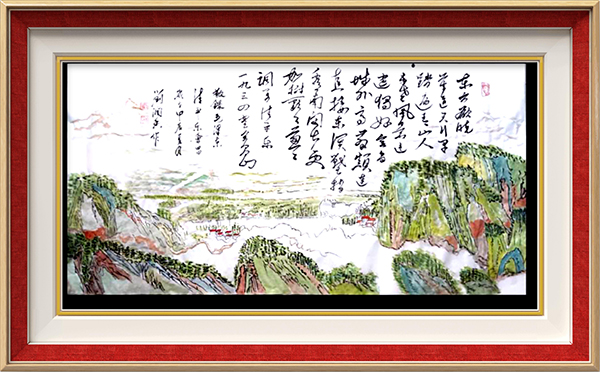 东方欲晓
莫道君行早
踏遍青山人
未老风景这
边独好会昌
城外高峰颠连
直接东溟战士指
看南粤更
加郁郁葱葱
调寄清平乐
一九三四年夏
敬录毛泽东
清平乐会昌
甲辰夏月